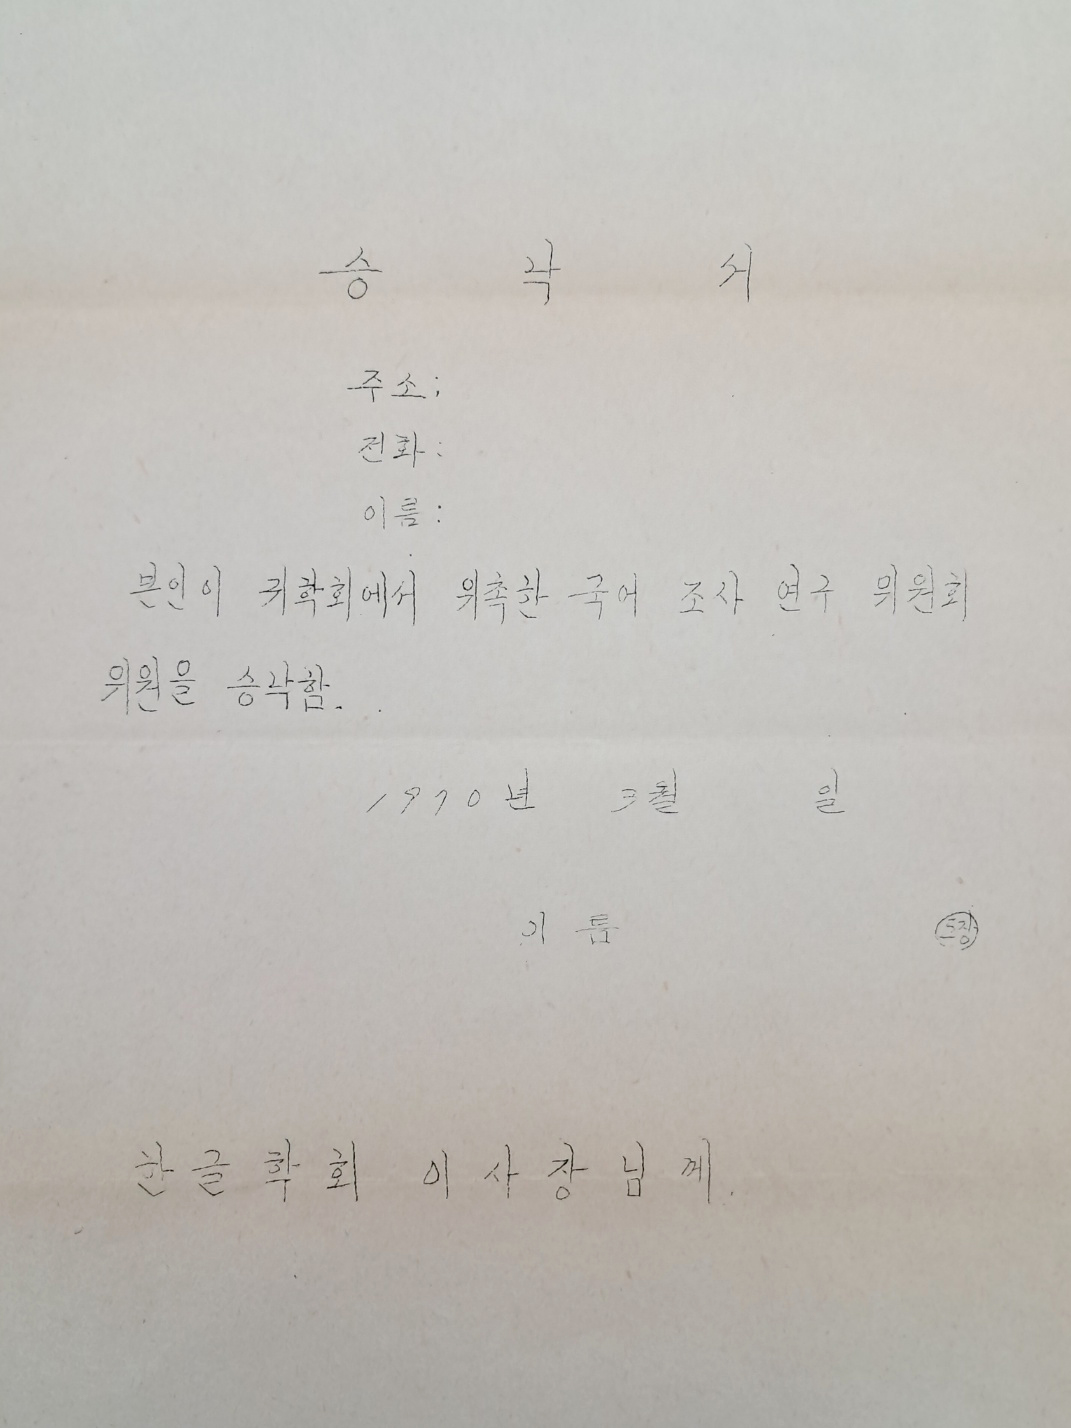 승 낙 서
주소;
전화:
이름:
본인이 귀학회에서 위촉한 국어 조사 연구 위원회
위원을 승낙함.
1970년 3월 일
이 름 도장
한글학회 이사장님께.